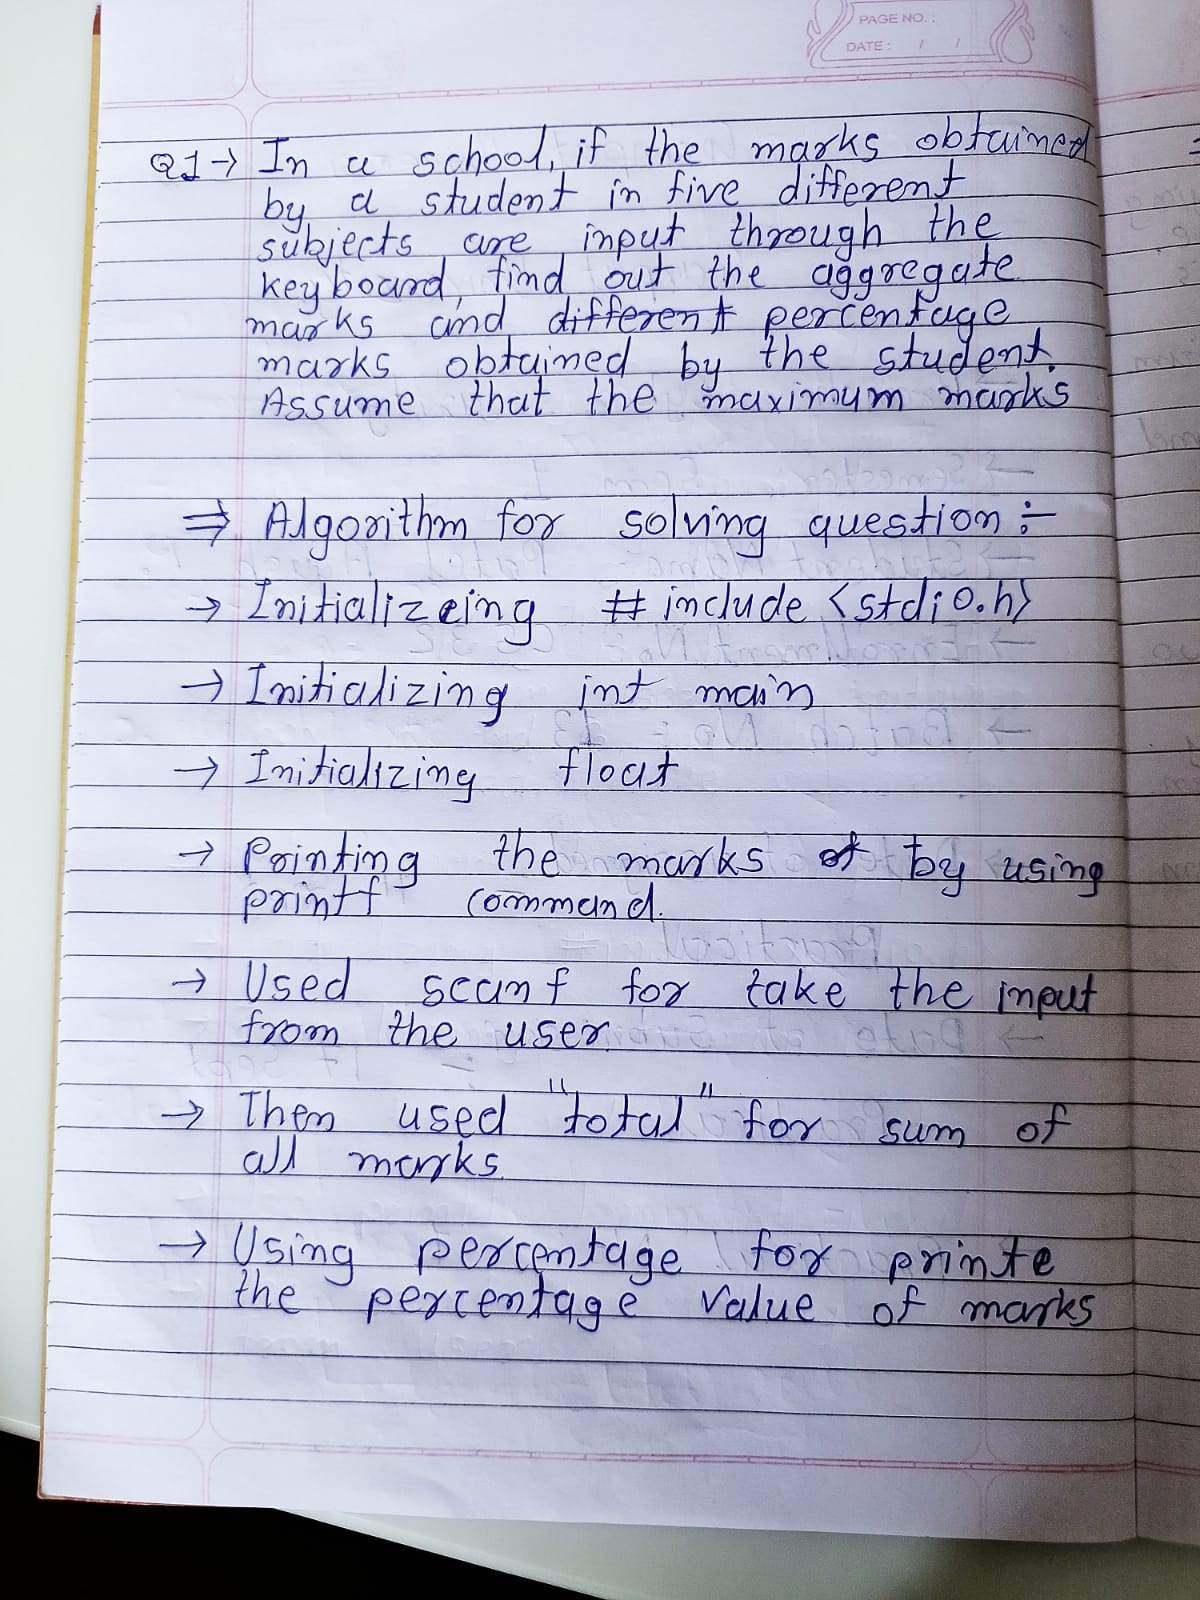 PAGE NO. :
DATE : / /
Q1→ In a school, if the marks obtained
by a student in five different
subjects are input through the
keyboard, find out the aggregate
marks and different percentage
marks obtained by the student.
Assume that the maximum marks
⇒ Algorithm for solving question ÷
→ Initializeing # include <stdio.h>
→ Initializing int main
→ Initializing float
→ Printing the marks of by using
printf command.
→ Used scanf for take the input
from the user
→ Then used "total" for sum of
all marks.
→ Using percentage for printe
the percentage value of marks